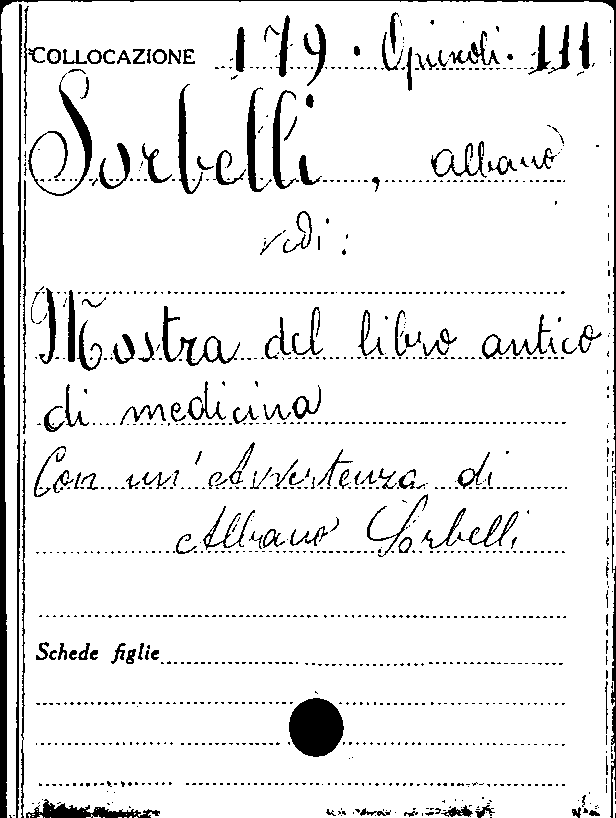 COLLOCAZIONE 179 . Opuscoli . 111
Sorbelli, Albano
vedi:
Mostra del libro antico
di medicina
Con un' Avvertenza di
Albano Sorbelli
Schede figlie